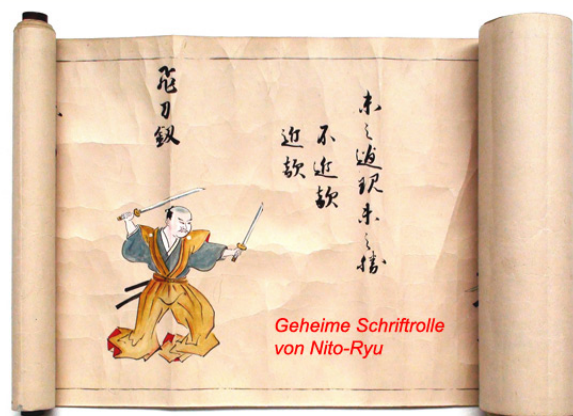 未之過現未之勝
不近歟
近歟
飛刀釼
Geheime Schriftrolle
von Nito-Ryu